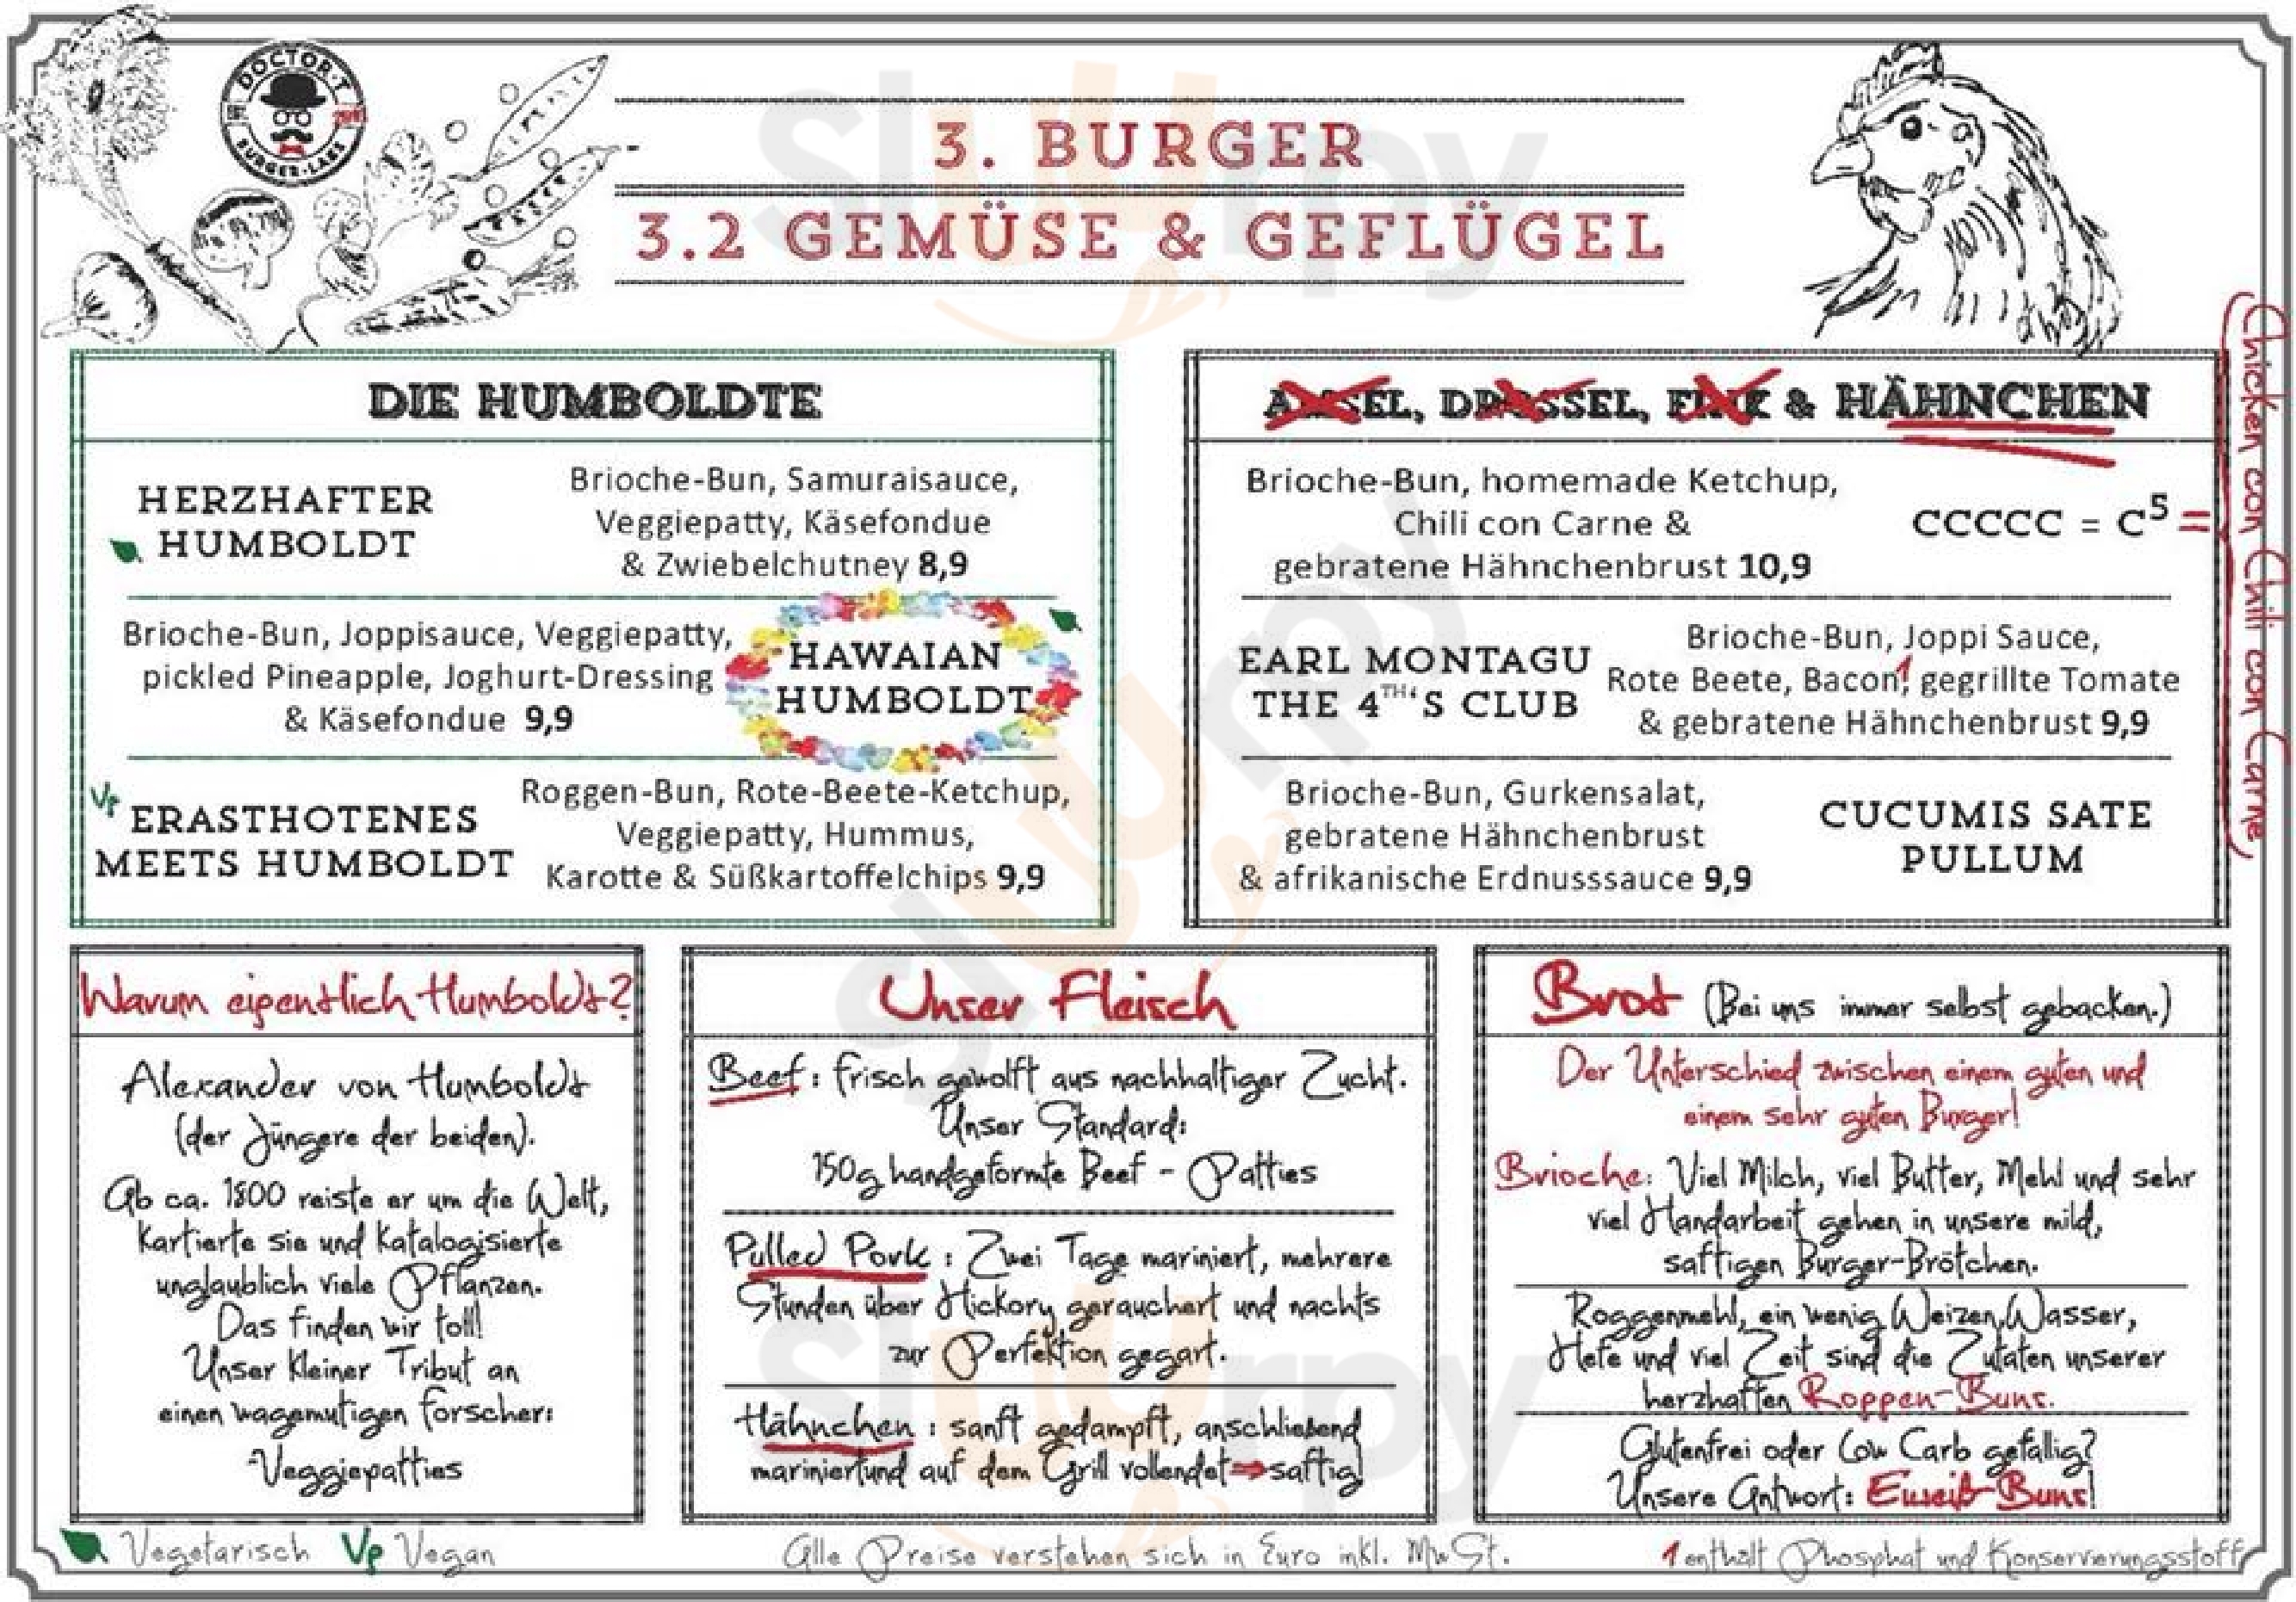 DOCTOR-T
BURGER-LABS
3. BURGER
3.2 GEMÜSE & GEFLÜGEL
DIE HUMBOLDTE
HERZHAFTER
HUMBOLDT
Brioche-Bun, Samuraisauce,
Veggiepatty, Käsefondue
& Zwiebelchutney 8,9
Brioche-Bun, Joppisauce, Veggiepatty,
pickled Pineapple, Joghurt-Dressing
& Käsefondue 9,9
HAWAIAN
HUMBOLDT
Vp
ERASTHOTENES
MEETS HUMBOLDT
Roggen-Bun, Rote-Beete-Ketchup,
Veggiepatty, Hummus,
Karotte & Süßkartoffelchips 9,9
AMSEL, DROSSEL, FINK & HÄHNCHEN
Brioche-Bun, homemade Ketchup,
Chili con Carne &
gebratene Hähnchenbrust 10,9
CCCCC = C5 =
Chicken con Chili con Carne
EARL MONTAGU
THE 4TH'S CLUB
Brioche-Bun, Joppi Sauce,
Rote Beete, Bacon,1 gegrillte Tomate
& gebratene Hähnchenbrust 9,9
Brioche-Bun, Gurkensalat,
gebratene Hähnchenbrust
& afrikanische Erdnusssauce 9,9
CUCUMIS SATE
PULLUM
Warum eigentlich Humboldt?
Alexander von Humboldt
(der Jüngere der beiden).
Ab ca. 1800 reiste er um die Welt,
kartierte sie und katalogisierte
unglaublich viele Pflanzen.
Das finden wir toll!
Unser kleiner Tribut an
einen wagemutigen Forscher:
-Veggiepatties
Unser Fleisch
Beef: frisch gewolft aus nachhaltiger Zucht.
Unser Standard:
150g handgeformte Beef - Patties
Pulled Pork: Zwei Tage mariniert, mehrere
Stunden über Hickory gerauchert und nachts
zur Perfektion gegart.
Hähnchen: sanft gedampft, anschließend
mariniertund auf dem Grill vollendet⇒saftig!
Brot (Bei uns immer selbst gebacken.)
Der Unterschied zwischen einem guten und
einem sehr guten Burger!
Brioche: Viel Milch, viel Butter, Mehl und sehr
viel Handarbeit gehen in unsere mild,
saftigen Burger-Brötchen.
Roggenmehl, ein wenig Weizen,Wasser,
Hefe und viel Zeit sind die Zutaten unserer
herzhaften Roggen-Buns.
Glutenfrei oder Low Carb gefällig?
Unsere Antwort: Eiweiß-Buns!
Vegetarisch Vp Vegan
Alle Preise verstehen sich in Euro inkl. MwSt.
1 enthält Phosphat und Konservierungsstoff
slurpy
slurpy
slurpy